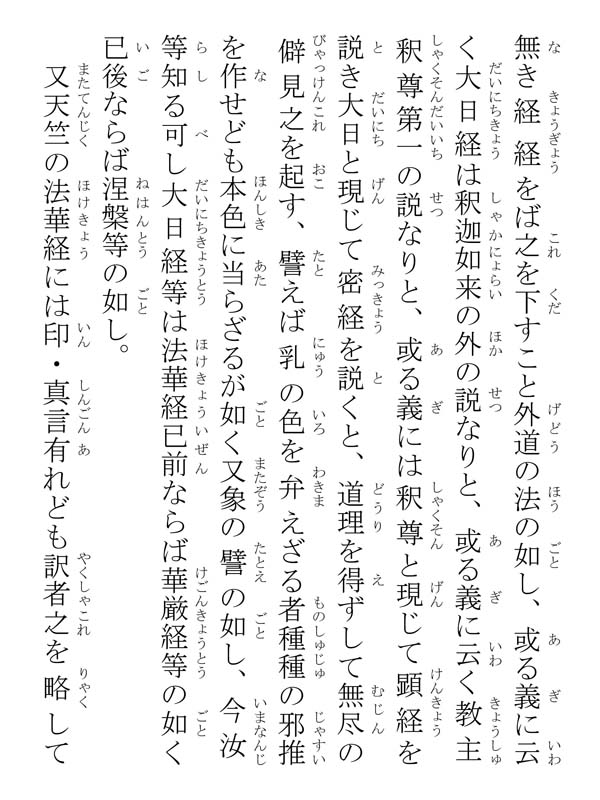 無き経経をば之を下すこと外道の法の如し、或る義に云
く大日経は釈迦如来の外の説なりと、或る義に云く教主
釈尊第一の説なりと、或る義には釈尊と現じて顕経を
説き大日と現じて密経を説くと、道理を得ずして無尽の
僻見之を起す、譬えば乳の色を弁えざる者種種の邪推
を作せども本色に当らざるが如く又象の譬の如し、今汝
等知る可し大日経等は法華経已前ならば華厳経等の如く
已後ならば涅槃等の如し。
又天竺の法華経には印・真言有れども訳者之を略して